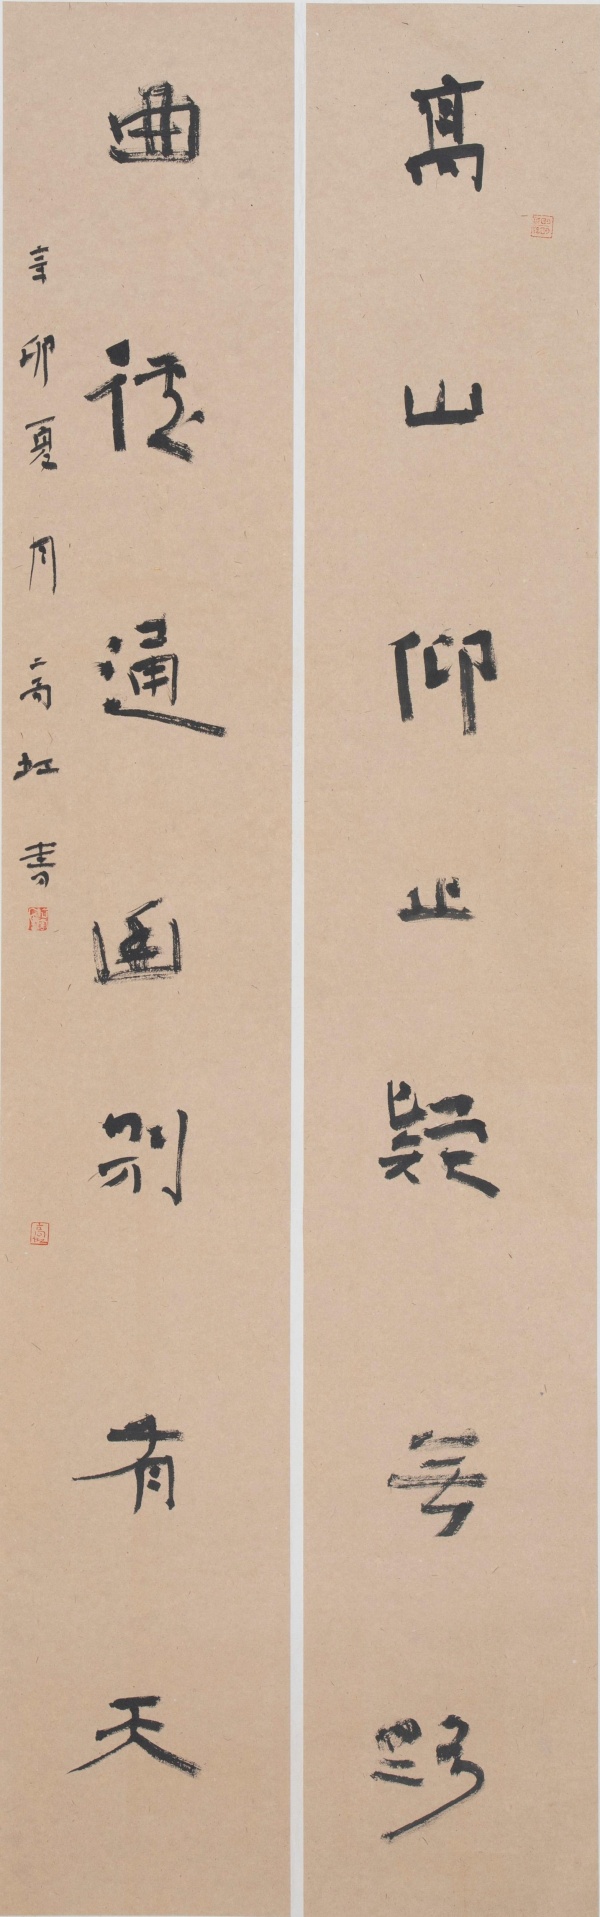 高山仰止疑無路
曲徑通幽別有天
辛卯夏月高虹書